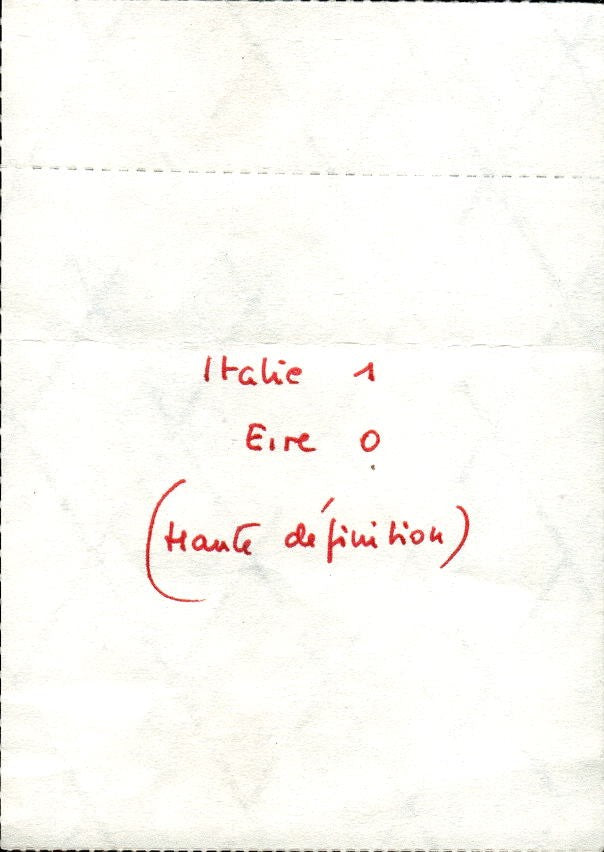 Italie 1
Eire 0
(Haute définition)